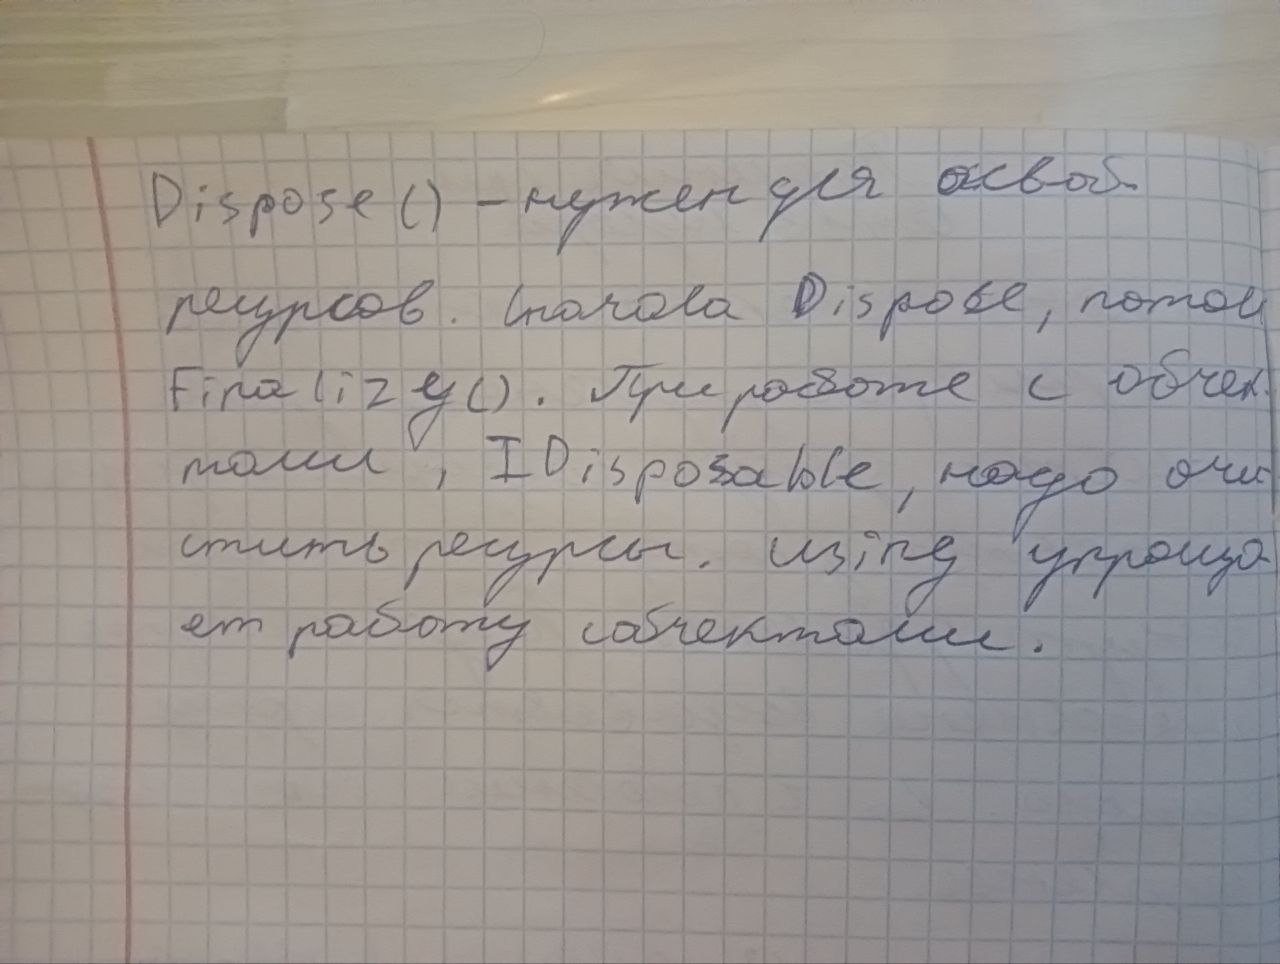 Dispose() - нужен для освоб.
ресурсов. Сначала Dispose, потом
Finalizy(). При работе с обчек
тами, IDisposable, надо очи
стить ресурсы. using упроща
ет работу собчектами.